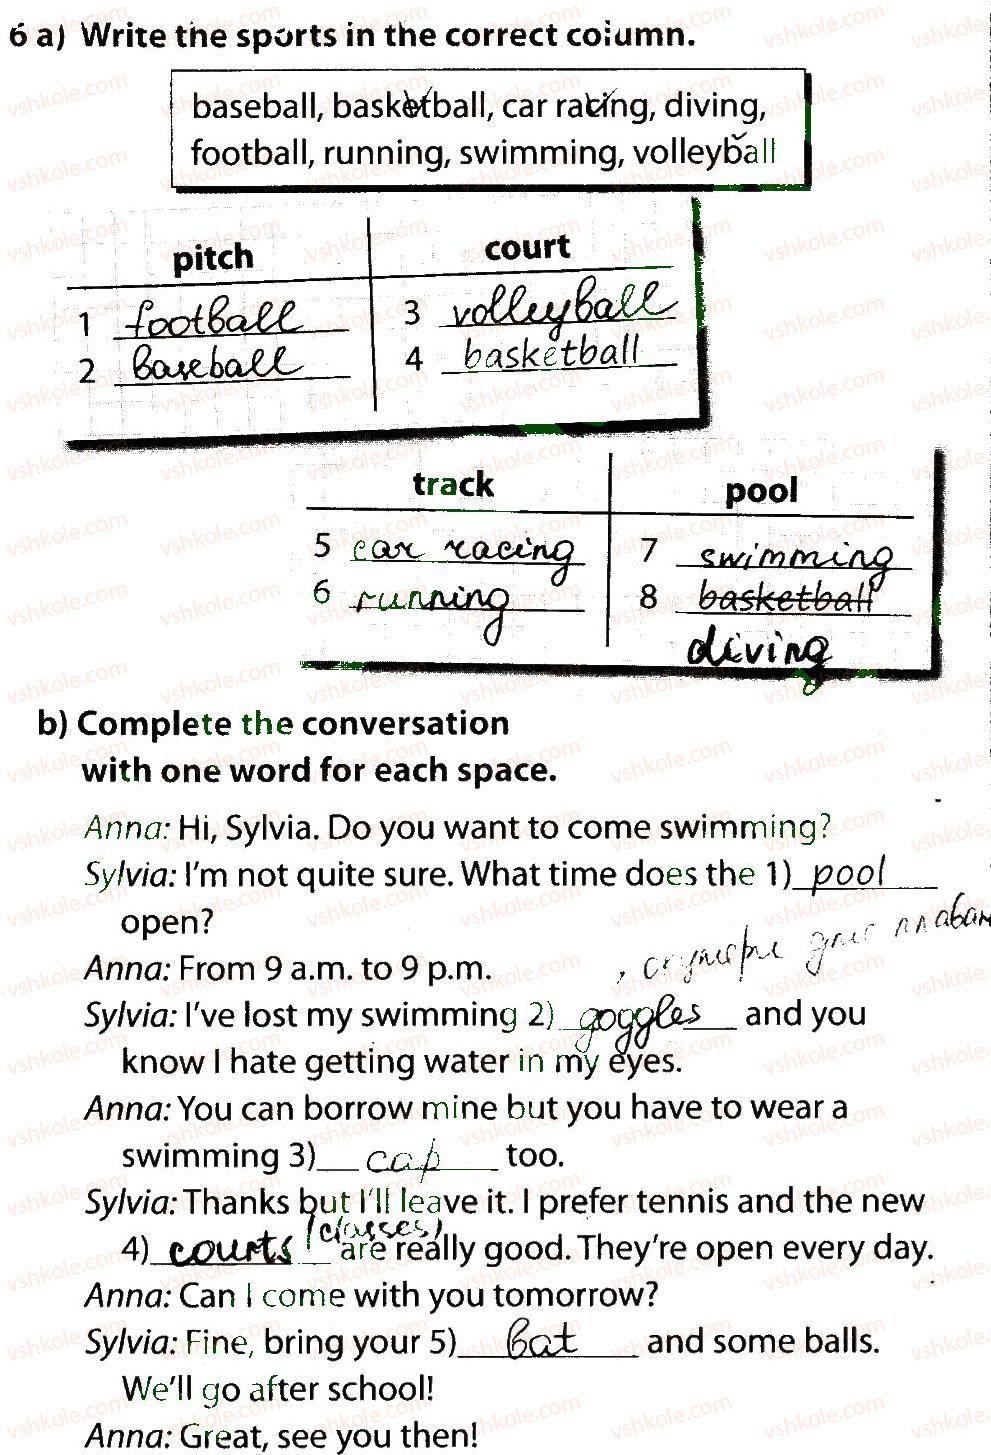 6 a) Write the sports in the correct column.
baseball, basketball, car racing, diving,
football, running, swimming, volleyball
pitch court
1 football 3 volleyball
2 baseball 4 basketball
track pool
5 car racing 7 swimming
6 running 8 basketball
diving
b) Complete the conversation
with one word for each space.
Anna: Hi, Sylvia. Do you want to come swimming?
Sylvia: I'm not quite sure. What time does the 1) pool
open?
Anna: From 9 a.m. to 9 p.m.
Sylvia: I've lost my swimming 2) goggles and you
know I hate getting water in my eyes.
Anna: You can borrow mine but you have to wear a
swimming 3) cap too.
Sylvia: Thanks but I'll leave it. I prefer tennis and the new
4) courts (classes) are really good. They're open every day.
Anna: Can I come with you tomorrow?
Sylvia: Fine, bring your 5) bat and some balls.
We'll go after school!
Anna: Great, see you then!
vshkole.com